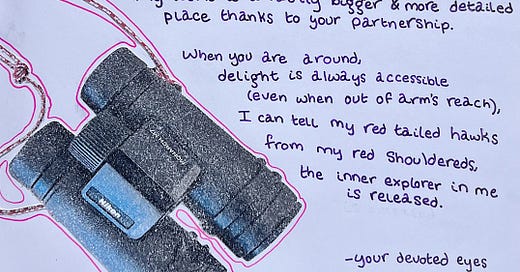 bigger & more detailed
place thanks to your partnership.
When you are around,
delight is always accessible
(even when out of arm's reach),
I can tell my red tailed hawks
from my red shouldereds,
the inner explorer in me
is released.
-your devoted eyes
Nikon